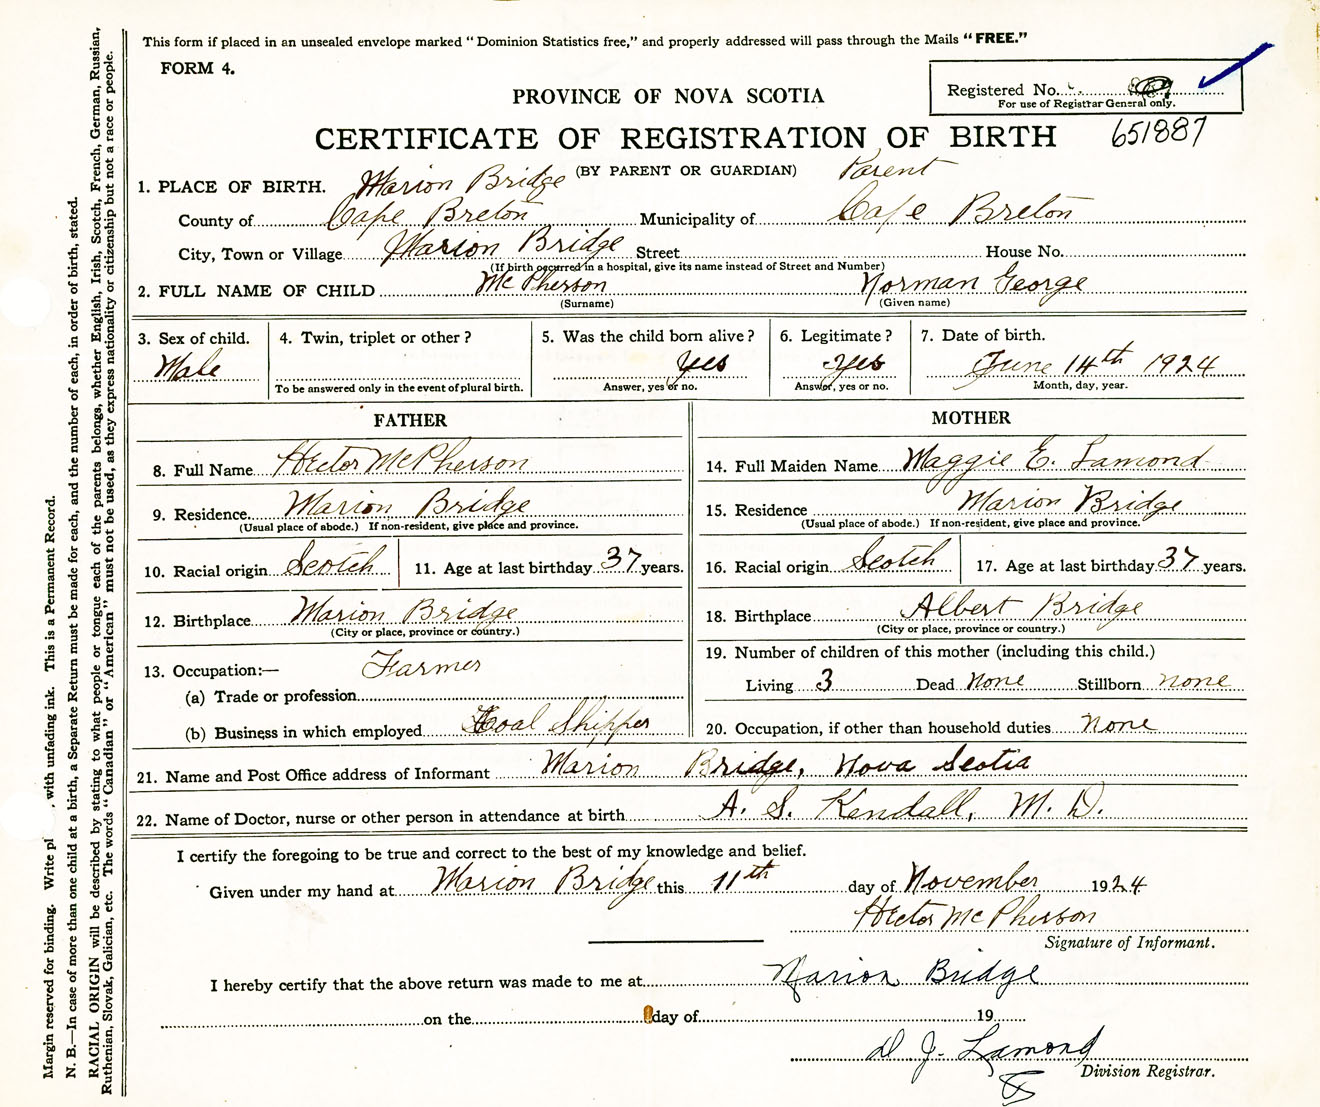 This form if placed in an unsealed envelope marked "Dominion Statistics free," and properly addressed will pass through the Mails "FREE."
FORM 4.
Registered No.
For use of Registrar General only.
PROVINCE OF NOVA SCOTIA
651887
CERTIFICATE OF REGISTRATION OF BIRTH
(BY PARENT OR GUARDIAN) Parent
1. PLACE OF BIRTH. Marion Bridge
County of Cape Breton Municipality of Cape Breton
City, Town or Village Marion Bridge Street House No.
(If birth occurred in a hospital, give its name instead of Street and Number)
2. FULL NAME OF CHILD McPherson Norman George
(Surname) (Given name)
3. Sex of child. 4. Twin, triplet or other? 5. Was the child born alive? 6. Legitimate? 7. Date of birth.
Male Yes Yes June 14th 1924
To be answered only in the event of plural birth. Answer, yes or no. Answer, yes or no. Month, day, year.
FATHER MOTHER
8. Full Name Hector McPherson 14. Full Maiden Name Maggie E. Lamond
9. Residence Marion Bridge 15. Residence Marion Bridge
(Usual place of abode.) If non-resident, give place and province. (Usual place of abode.) If non-resident, give place and province.
10. Racial origin Scotch 11. Age at last birthday 37 years. 16. Racial origin Scotch 17. Age at last birthday 37 years.
12. Birthplace Marion Bridge 18. Birthplace Albert Bridge
(City or place, province or country.) (City or place, province or country.)
13. Occupation:— Farmer 19. Number of children of this mother (including this child.)
(a) Trade or profession Living 3 Dead None Stillborn none
(b) Business in which employed Coal Shipper 20. Occupation, if other than household duties none
21. Name and Post Office address of Informant Marion Bridge, Nova Scotia
22. Name of Doctor, nurse or other person in attendance at birth A. S. Kendall, M. D.
I certify the foregoing to be true and correct to the best of my knowledge and belief.
Given under my hand at Marion Bridge this 11th day of November 1924
Hector McPherson
Signature of Informant.
I hereby certify that the above return was made to me at Marion Bridge
on the day of 19
D J. Lamond
Division Registrar.
Margin reserved for binding. Write pl , with unfading ink. This is a Permanent Record.
N. B.—In case of more than one child at a birth, a Separate Return must be made for each, and the number of each, in order of birth, stated.
RACIAL ORIGIN will be described by stating to what people or tongue each of the parents belongs, whether English, Irish, Scotch, French, German, Russian,
Ruthenian, Slovak, Galician, etc. The words "Canadian" or "American" must not be used, as they express nationality or citizenship but not a race or people.